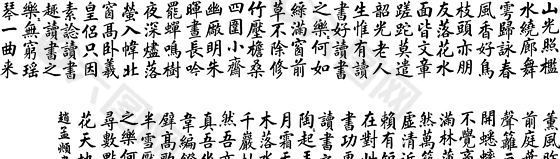 山光照檻
水繞廊舞
雩歸詠春
風香好鳥
枝頭亦朋
友落花水
面皆文章
蹉跎莫遣
韶光老人
生惟有讀
書好讀書
之樂何如
綠滿窗前
草不除修
竹壓檐桑
四圍小齋
幽敞明朱
暉晝長吟
罷蟬鳴樹
夜深燼落
螢入幃北
窗高臥羲
皇侶只因
素諗讀書
趣讀書之
樂無窮瑤
琴一曲来
薰風
前庭葉
聲籬
開蟋
不覺
滿林
然萬
虛清
賴有
在對
書功
讀書
陶起
月霜天
木落
千巖
然吾亦
真吾坐
韋編
燈高歌
半雪壓
之樂何
尋數點
花天地
趙孟頫